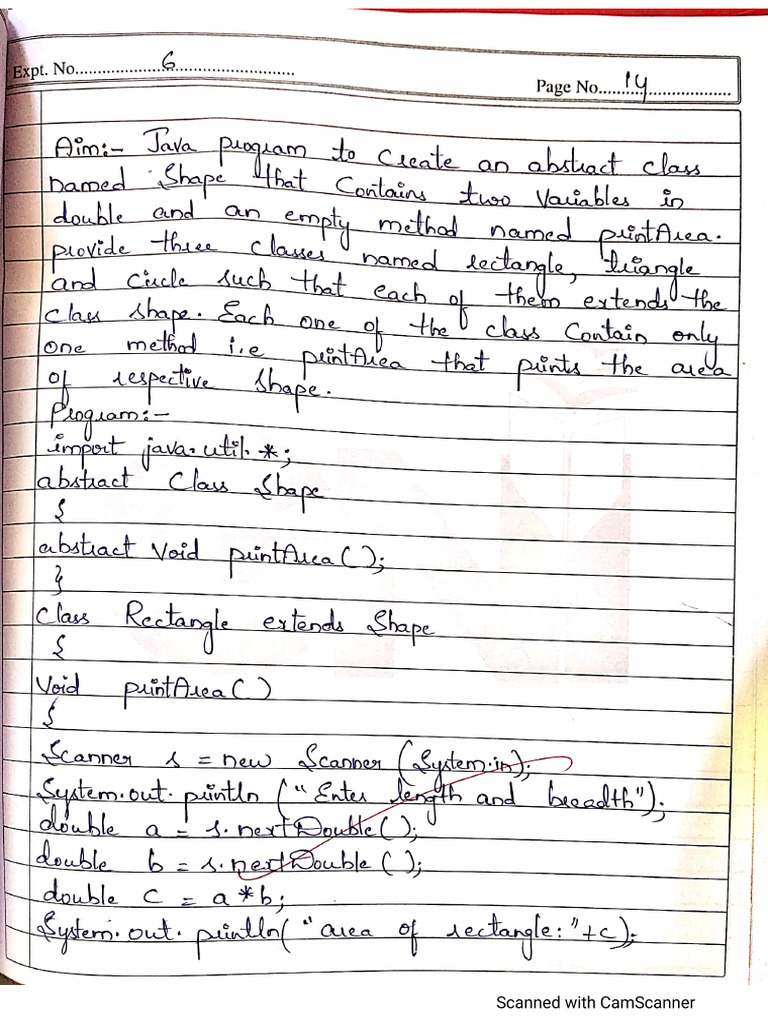 Expt. No. 6
Page No. 14
Aim:- Java program to create an abstract class
named Shape that Contains two variables in
double and an empty method named printArea.
provide three classes named rectangle, triangle
and circle such that each of them extends the
class shape. Each one of the class Contain only
one method i.e printArea that prints the area
of respective shape.
Program:-
import java.util.*;
abstract Class Shape
{
abstract void printArea();
}
class Rectangle extends Shape
{
Void printArea()
{
Scanner s = new Scanner (System.in);
System.out.println ("Enter length and breadth");
double a = s.nextDouble();
double b = s.nextDouble();
double c = a*b;
System.out.println("area of rectangle:"+c);
Scanned with CamScanner